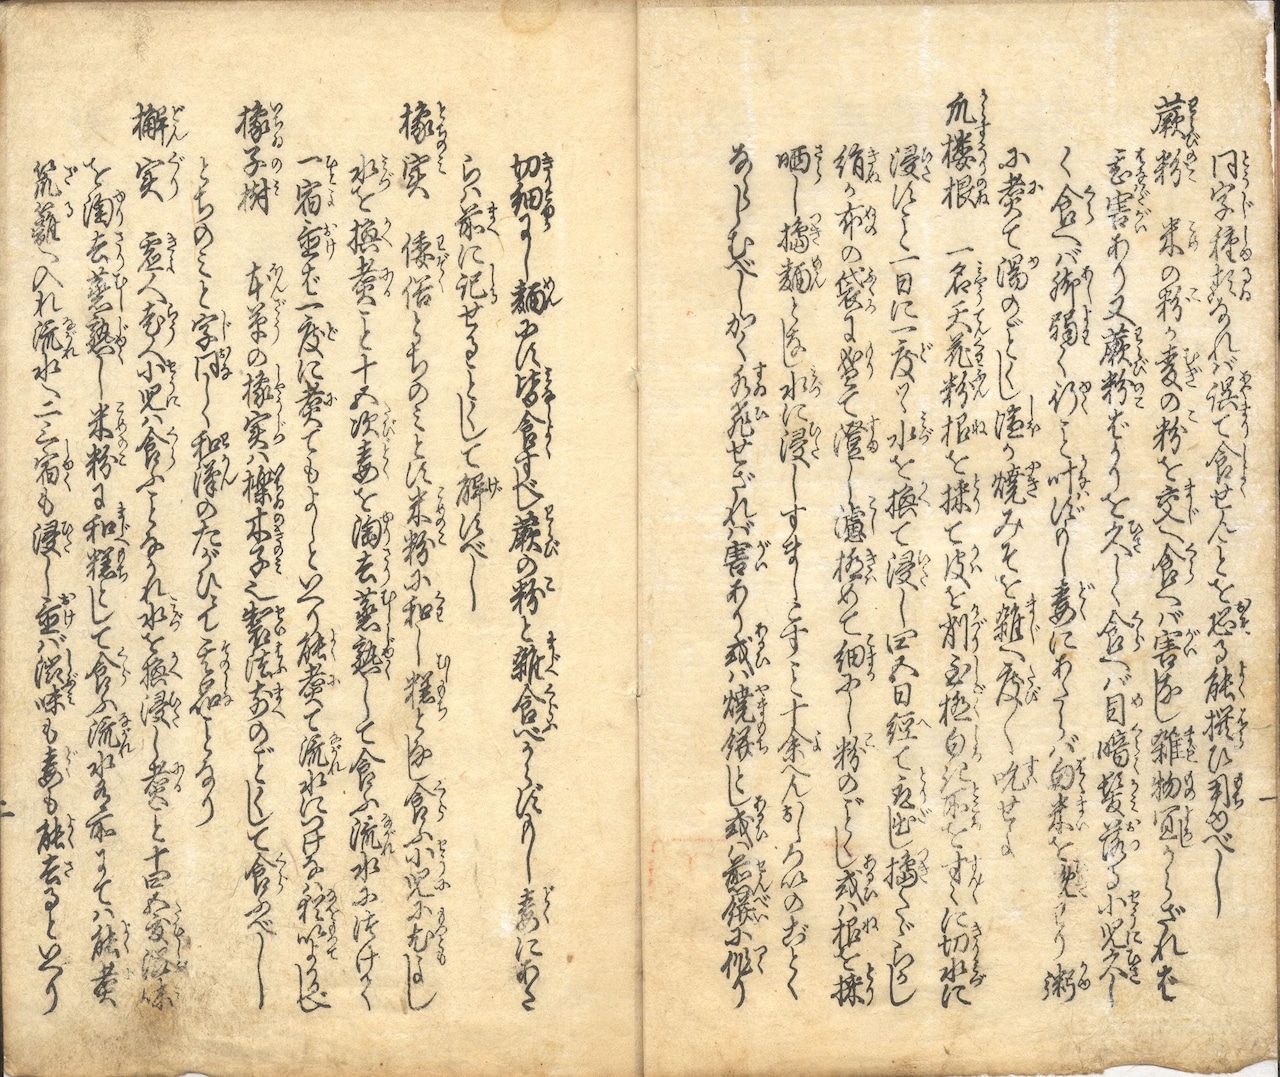 同字種類なれバ誤て食せんことを恐る能撰ひ用ゆべし
蕨粉　米の粉か麦の粉を交へ食へバ害なし雑物宜からざれば
毒害あり又蕨粉ばかりを久しく食へバ目暗髪落る小児久し
く食へバ脚弱く行こと叶はずもし毒にあたらバ白米を
に煑て湯のごとくし塩か焼みそを雑へ度〻吃せよ
瓜楼根　一名天花粉根を採て皮を削至極白き所をすくに切水に
浸すこと一日に一度づゝ水を換て浸し四五日経て取出し搗たゞらかし
絹か布の袋にて澄し濾極めて細かにし粉のごとくし或ハ根を採
晒し搗麺となし水に浸しすましこすこと十余へんおしろいのごとく
ならしむべしかく水飛せざれバ害あり或ハ焼餅とし或ハ煎餅に作り
切細にし麺にし皆食すべし蕨の粉と雑食べからずもし毒にあた
らハ前に記せることくして解すべし
橡実　倭俗とちのミとす米粉に和し糕となし食ふ小児に尤よし
水を換煑こと十五次毒を淘去蒸熟して食ふ流水につけをく
一宿至て一度に煑てもよしといへり能煑て流水につけをハ
橡子樹　本草の橡実ハ櫟木子也製法前のごとくして食ふべし
とちのこと字同しく和漢のたがひにて異名ことなり
檞実　虚人老人小児ハ食ふことなかれ水を換浸し煑こと十四五度渋味
を淘去蒸熟し米粉に和糕として食ふ流水有所にてハ能煑
笊籬へ入れ流水へ二三宿も浸し置バ渋味も毒も能去るといへり